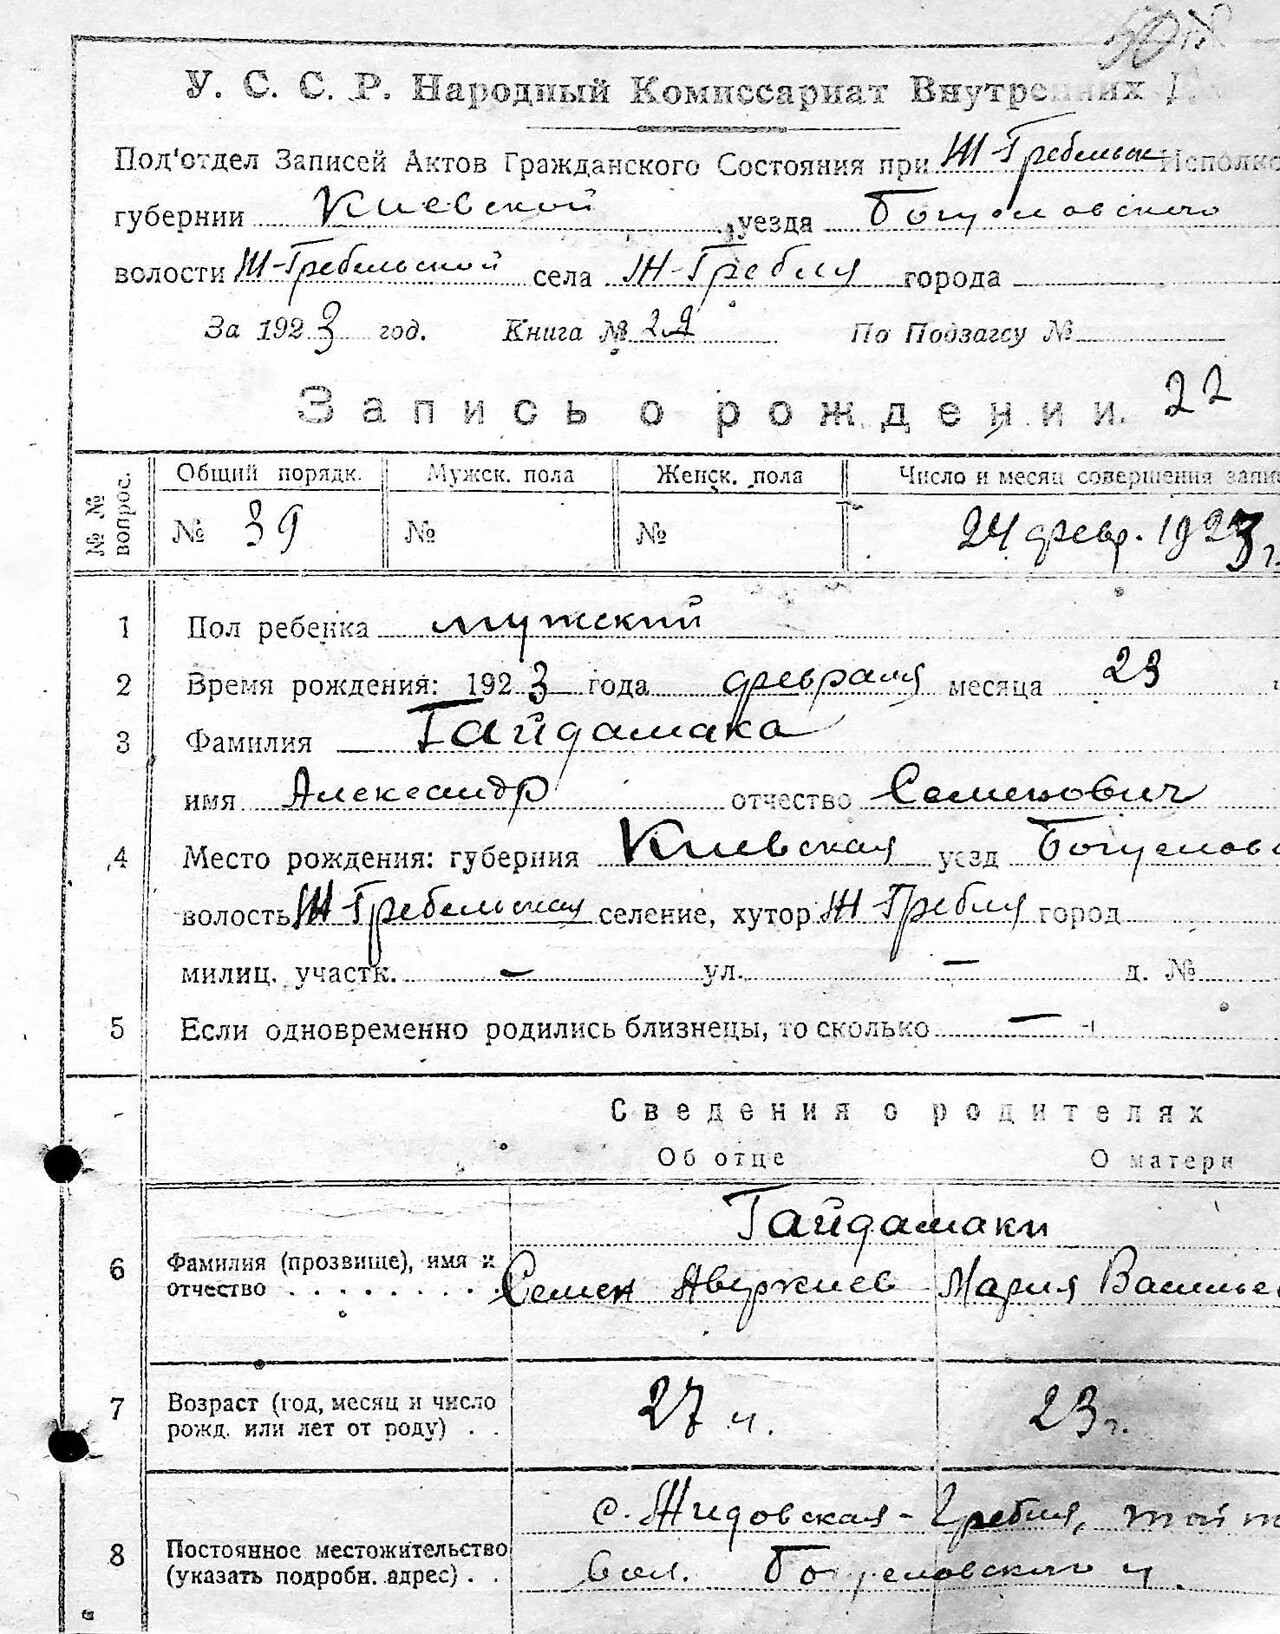 У. С. С. Р. Народный Комиссариат Внутренних
Под'отдел Записей Актов Гражданского Состояния при Ж-Гребельск Исполко
губернии Киевской уезда Богуславского
волости Ж-Гребельской села Ж-Гребля города
За 1923 год. Книга № По Подзагсу №
Запись о рождении. 22
№ № вопрос. Общий порядк. Мужск. пола Женск. пола Число и месяц совершения запи
№ 39 № № 24 февр. 1923 г.
1 Пол ребенка мужский
2 Время рождения: 1923 года февраля месяца 23
3 Фамилия Гайдамака
имя Александр отчество Семенович
4 Место рождения: губерния Киевская уезд Богуславс
волость Ж-Гребельская селение, хутор Ж-Гребля город
милиц. участк. — ул. — д. №
5 Если одновременно родились близнецы, то сколько —
Сведения о родителях
Об отце О матери
Гайдамаки
6 Фамилия (прозвище), имя и
отчество . . . . . . . . Семен Аверкиев Мария Васильев
7 Возраст (год, месяц и число
рожд. или лет от роду) . . 27 л. 23 г.
с. Жидовская-Гребля, той
8 Постоянное местожительство
(указать подробн. адрес) . . вол. Богуславского у.